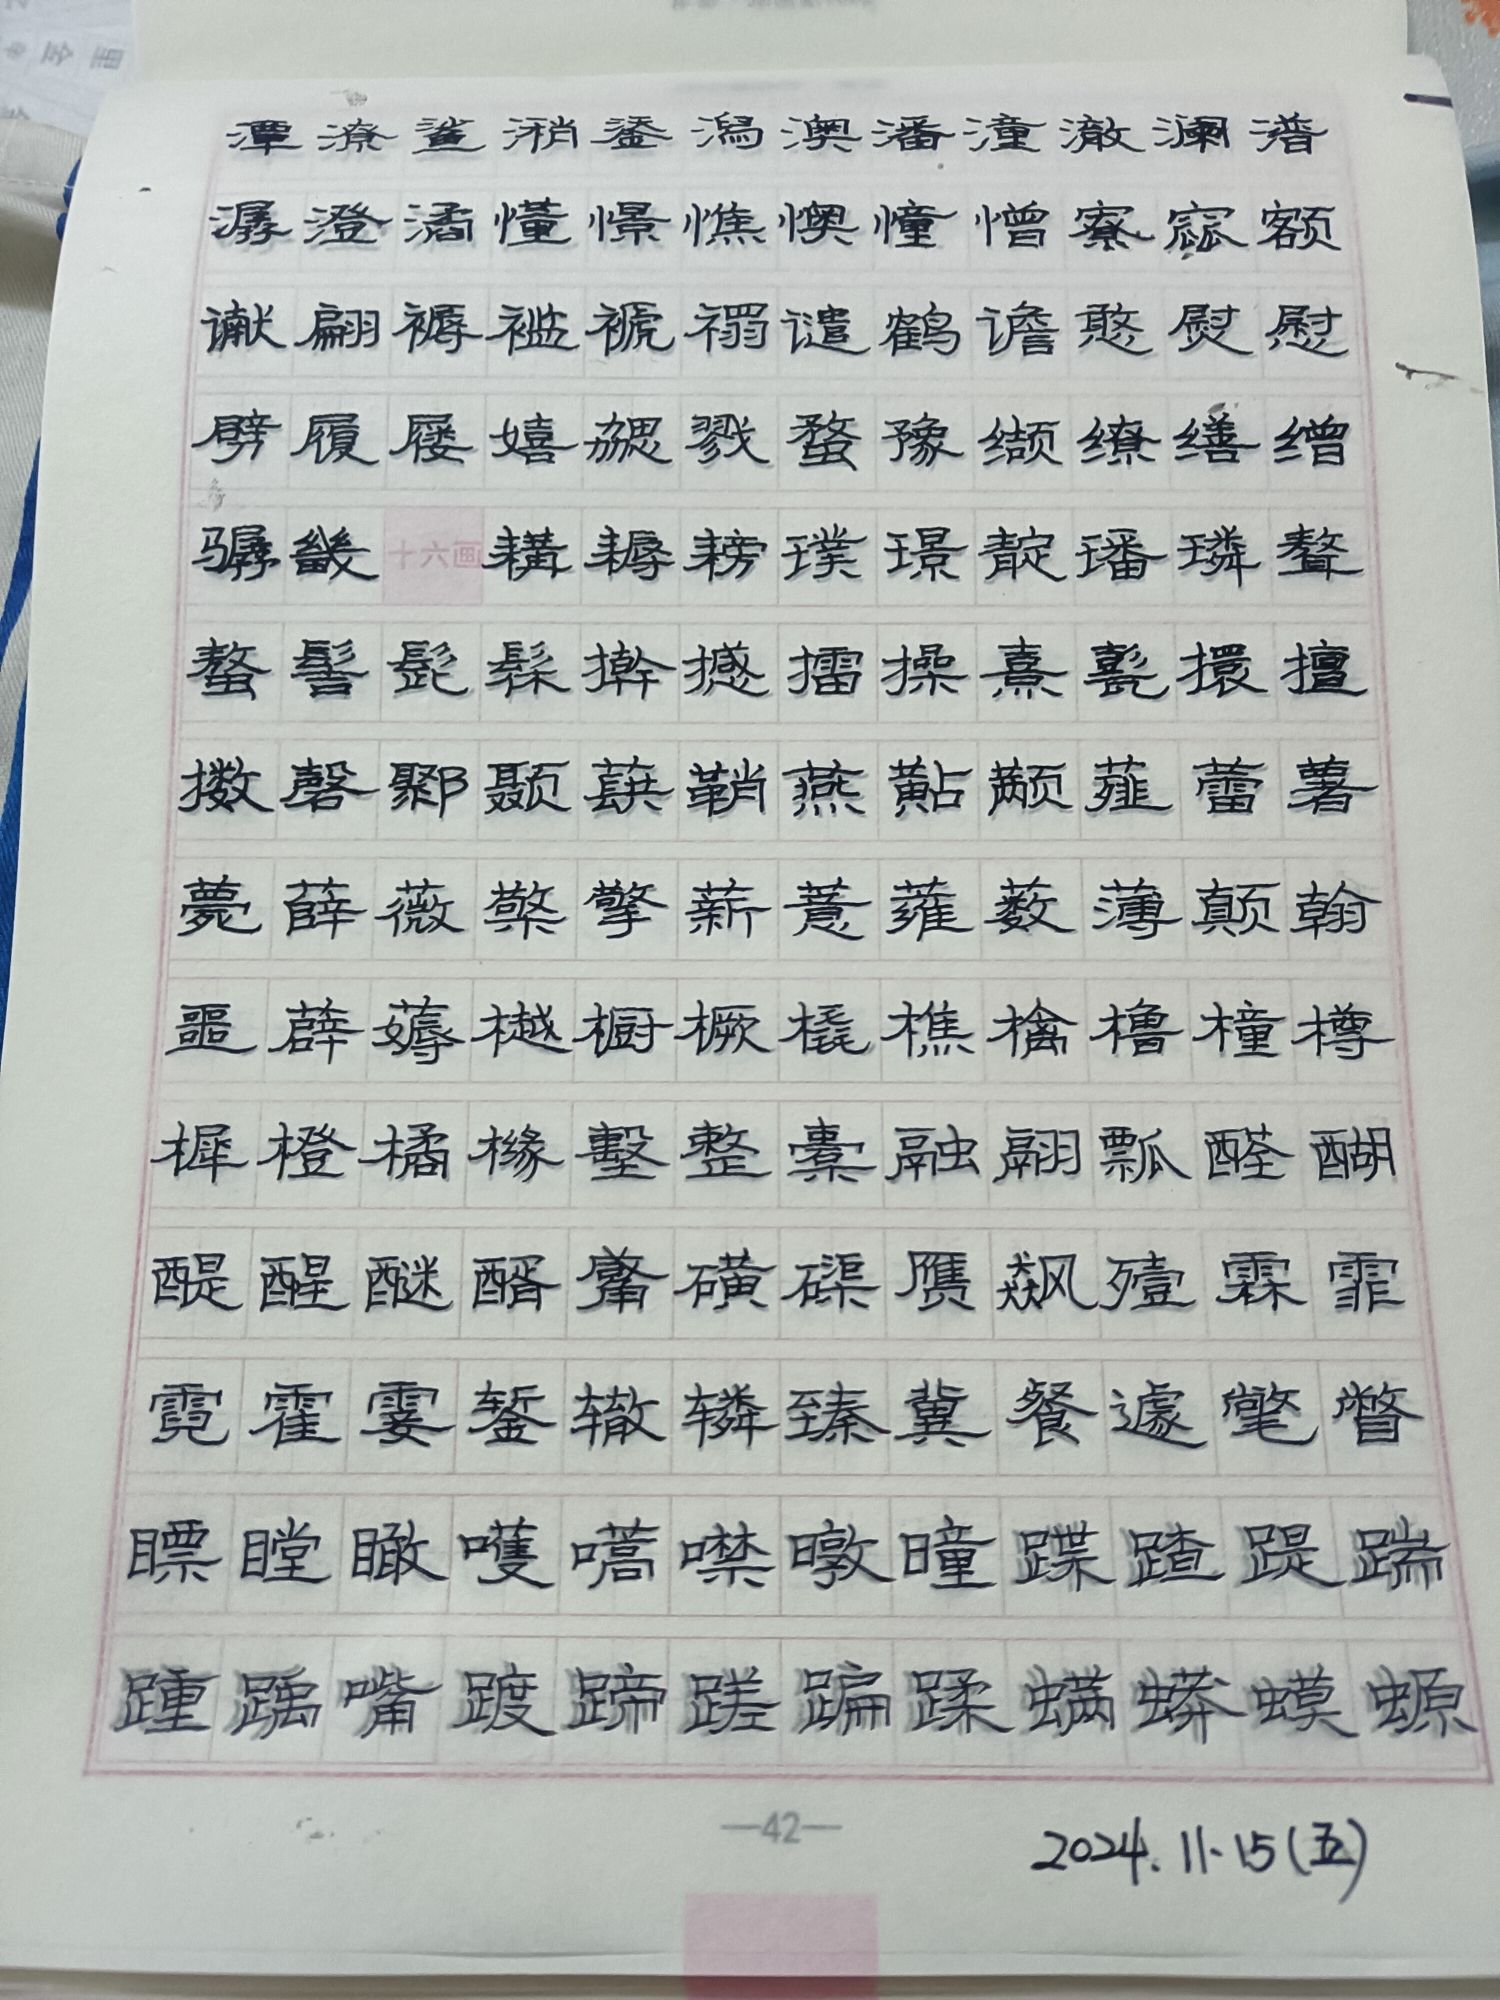 潭潦鲨潲鋈潟澳潘潼澈澜潽
潺澄潏懂憬憔懊憧憎寮窳额
谳翩褥褴褫禤谴鹤谵憨熨慰
劈履屦嬉勰戮蝥豫缬缭缮缯
骣畿 十六画 耩耨耪璞璟靛璠璘聱
螯髻髭髹擀撼擂操熹甏擐擅
擞磬鄹颞蕻鞘燕黇颟薤蕾薯
薨薛薇檠擎薪薏蕹薮薄颠翰
噩薜薅樾橱橛橇樵檎橹橦樽
樨橙橘橼墼整橐融翮瓢醛醐
醍醒醚醑觱磺磲赝飙殪霖霏
霓霍霎錾辙辚臻冀餐遽氅瞥
瞟瞠瞰嚄嚆噤暾曈蹀蹅踶踹
踵踽嘴踱蹄蹉蹁蹂螨蟒蟆螈
—42—
2024.11.15(五)